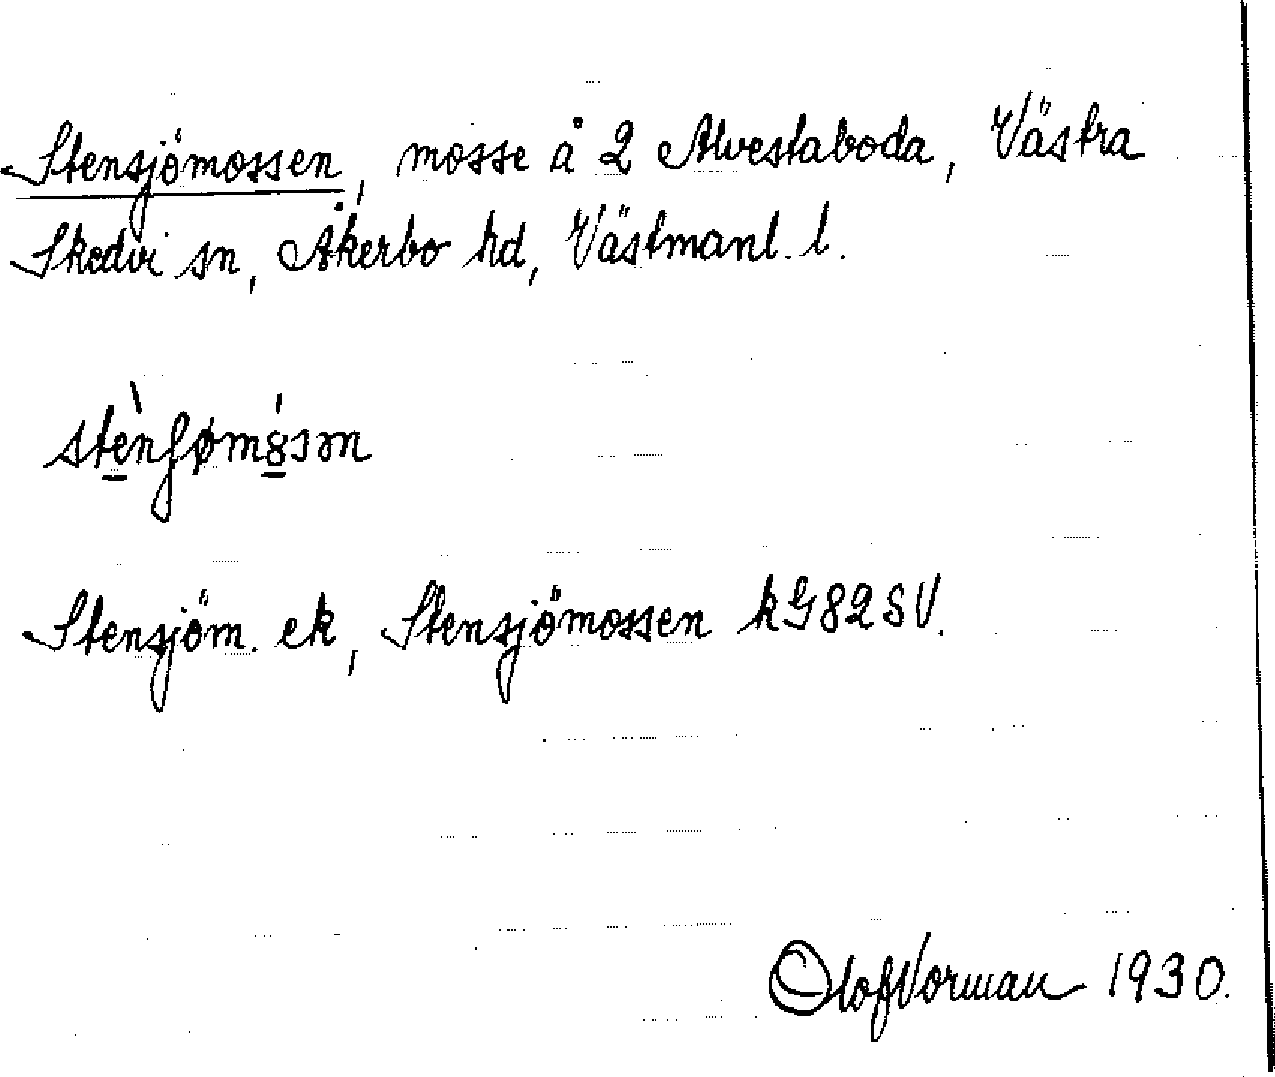 Stensjömossen, mosse å 2 Alvestaboda, Västra
Skedvi sn, Åkerbo hd, Västmanl. l.
Stensjöm. ek, Stensjömossen kG82SV.
Olof Vorman 1930.